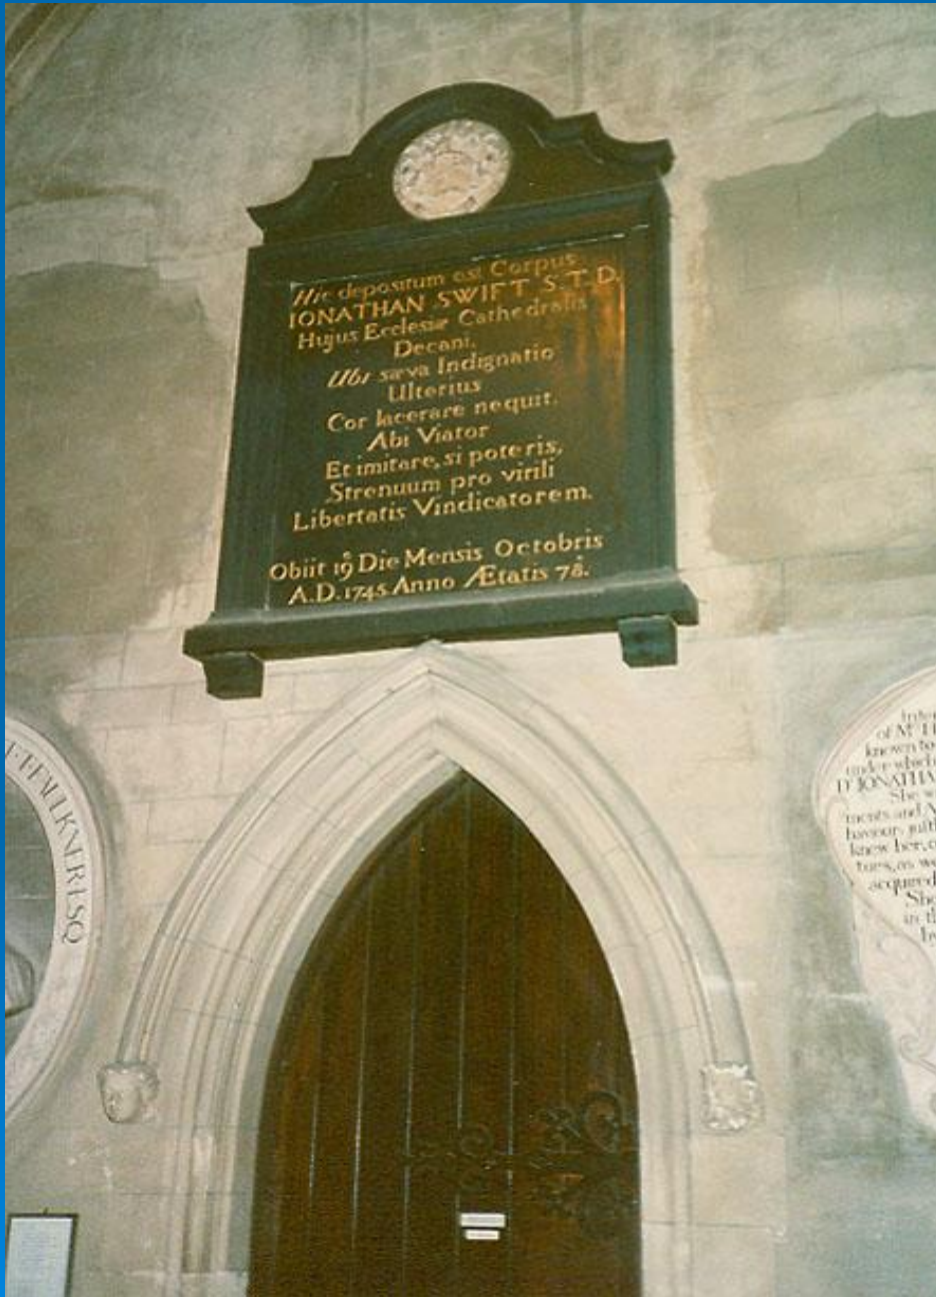 Hic depositum est Corpus
IONATHAN SWIFT S.T.D.
Hujus Ecclesiæ Cathedralis
Decani,
Ubi sæva Indignatio
Ulterius
Cor lacerare nequit.
Abi Viator
Et imitare, si poteris,
Strenuum pro virili
Libertatis Vindicatorem.
Obiit 19º Die Mensis Octobris
A.D. 1745 Anno Ætatis 78º.
FAULKNER ESQ
of Mrs
known to
under which
Dr JONATHAN
She
ments and
haviour
knew her,
tues, as
acquired
She
in